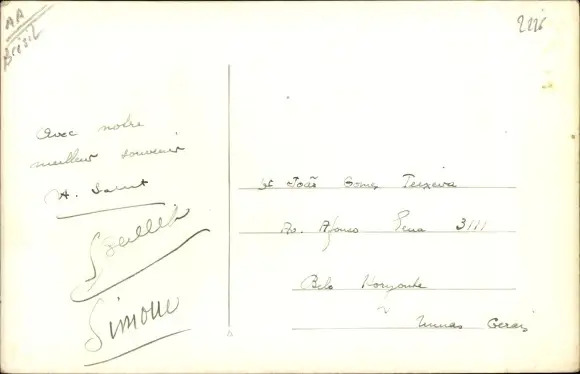 AA
Brésil
2226
Avec notre
meilleur souvenir
H. Saint
Simone
Sr João Gomes Teixeira
Av. Afonso Pena 3111
Belo Horizonte
Minas Gerais